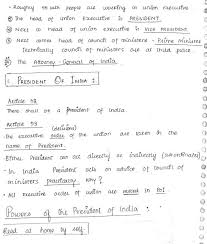 • Roughly 55 lakh people are working in union executive
The head of union executive is PRESIDENT.
Next to head of union executive is VICE PRESIDENT
Next comes head of council of ministers - Prime Minister
Technically council of ministers are at third place
The Attorney-General of India
: PRESIDENT OF INDIA :
Article 52
There shall be a President of India
Article 53
(decisions)
The executive order of the union are taken in the
name of President.
Either President can act directly or indirectly (subordinate)
• In India President acts on advice of council of
ministers practically. Why?
• All executive order of union are passed in
Powers of the President of India :
Read at home by self